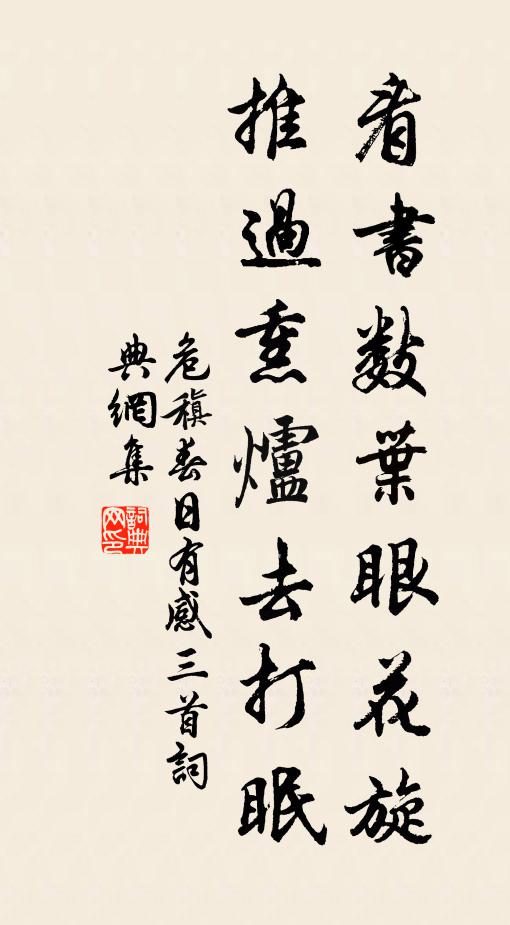 看書數葉眼花旋
推過熏爐去打眠
危稹春日有感三首詞
典網集
詞典
网印